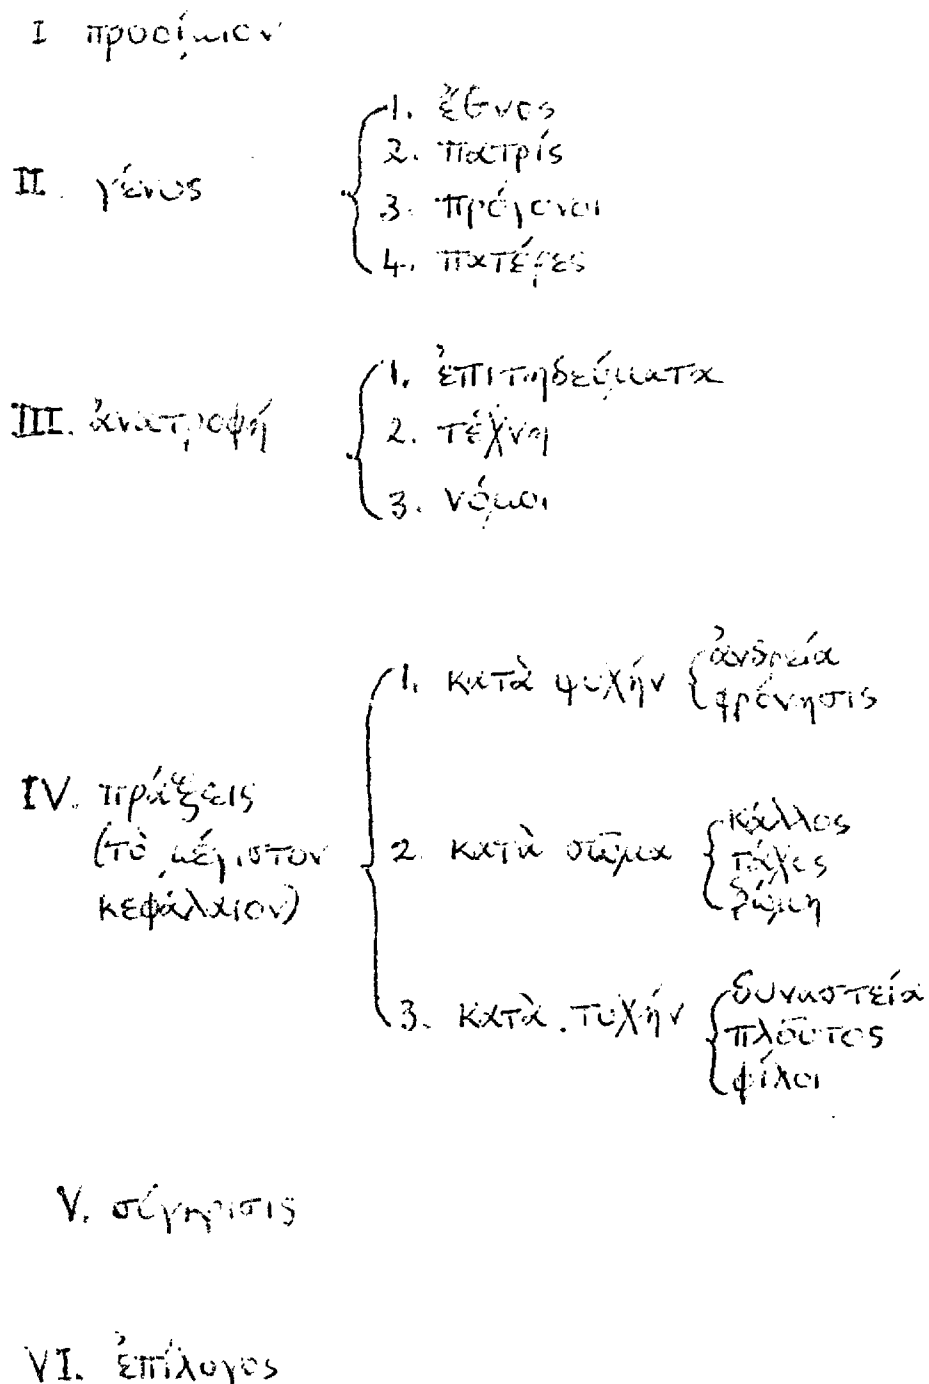 I προοίμιον
II. γένος
1. ἔθνος
2. πατρίς
3. πρόγονοι
4. πατέρες
III. ἀνατροφή
1. ἐπιτηδεύματα
2. τέχνη
3. νόμοι
IV. πράξεις
(τὸ μέγιστον
κεφάλαιον)
1. κατὰ ψυχήν
ἀνδρεία
φρόνησις
2. κατὰ σῶμα
κάλλος
τάχος
ῥώμη
3. κατὰ τυχήν
δυναστεία
πλοῦτος
φίλοι
V. σύγκρισις
VI. ἐπίλογος